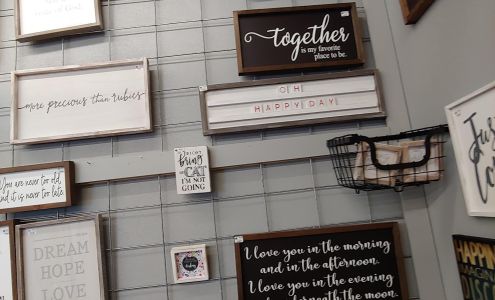 together
is my favorite
place to be.
more precious than rubies
OH
HAPPY DAY
bring
CAT
I'M NOT
GOING
You are never too old
and it is never too late.
DREAM
HOPE
LOVE
I love you in the morning
and in the afternoon.
I love you in the evening
underneath the moon.
Just